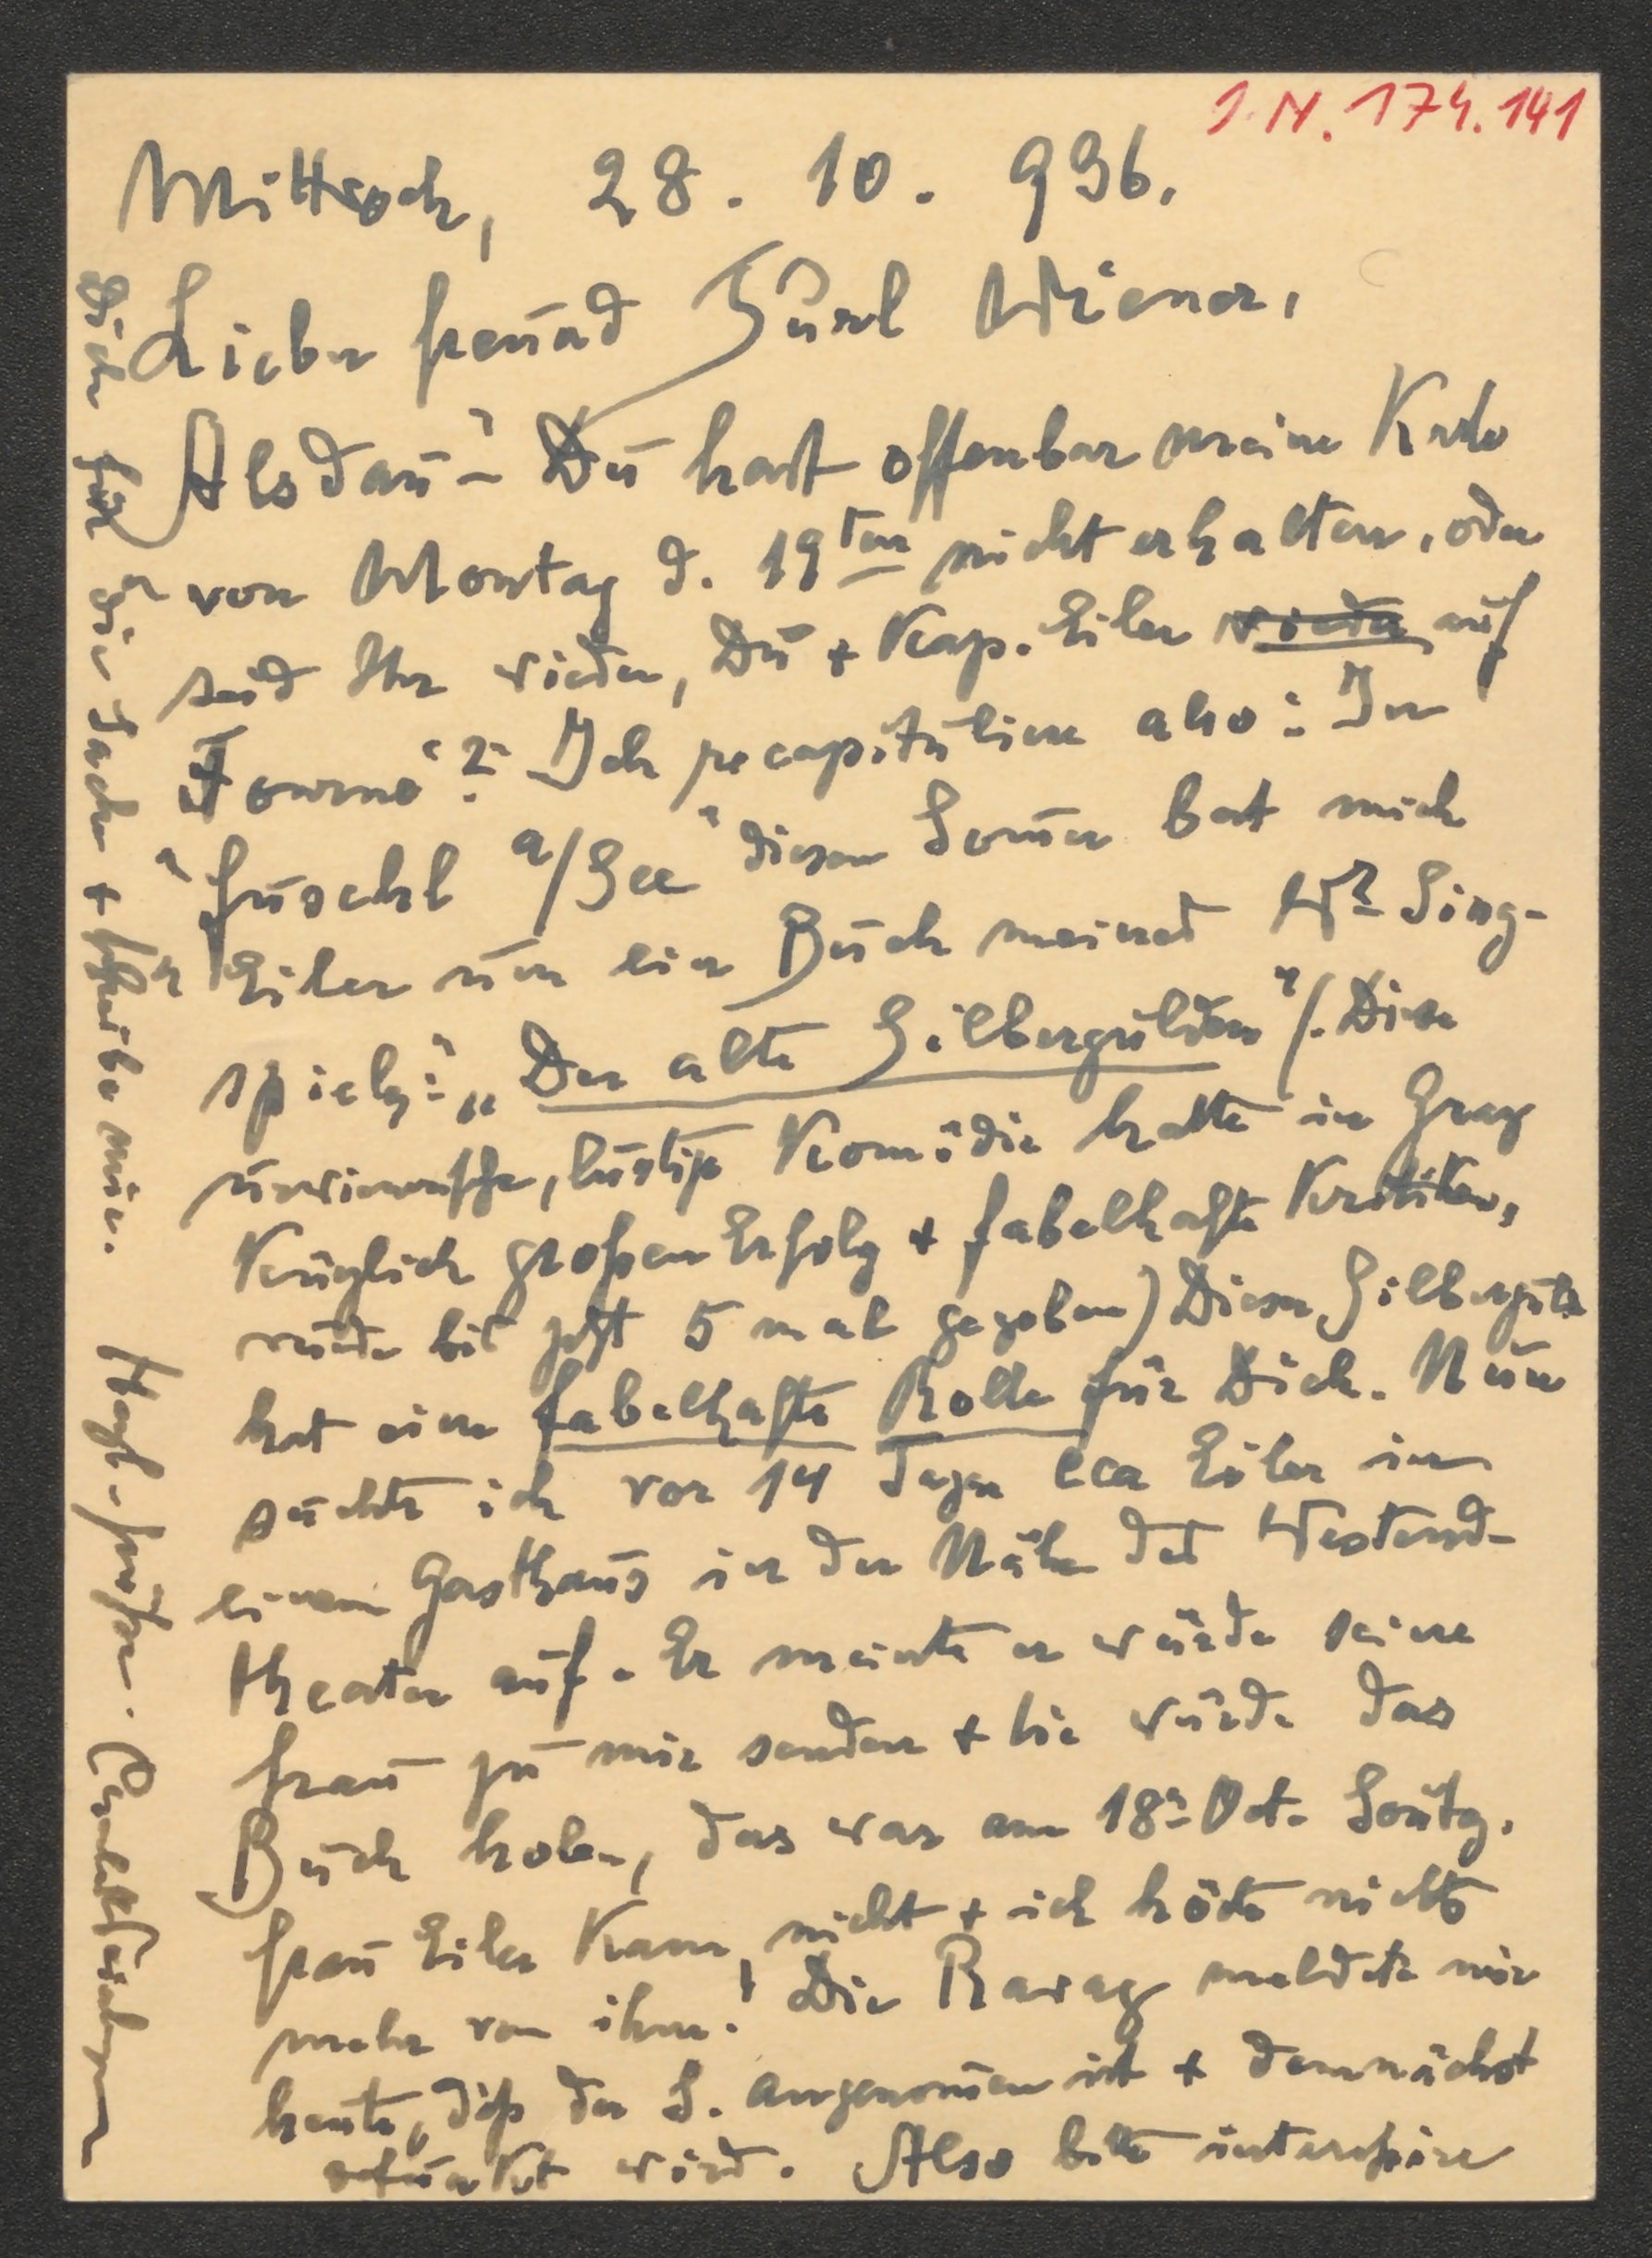 I.N. 174.141
Mittwoch, 28. 10. 936.
Lieber Freund Hugo Wiener,
Alsdann – Du hast offenbar meine Karte
von Montag d. 19ten nicht erhalten, oder
seid Ihr wieder, Du + Kap. Eiler wieder auf
Tourné? Ich recapituliere also: In
„Fuschl a/See" diesen Som̅er bat mich
Eiler um ein Buch meines Wr Sing-
spiels: „Der alte Silbergulden"/. Diese
urwienerische, lustige Komödie hatte in Graz
kürzlich großen Erfolg + fabelhafte Kritiken,
wurde bis jetzt 5 mal gegeben) Dieser Silbergul.
hat eine fabelhafte Rolle für Dich. Nun
suchte ich vor 14 Tagen cca Eiler in
einem Gasthaus in der Nähe des Westend-
theater auf. Er meinte er würde seine
Frau zu mir senden + sie würde das
Buch holen, das war am 18. Oct. Sontg.
Frau Eiler kam nicht + ich hörte nichts
mehr von ihm! Die Ravag meldete mir
heute, daß der S. angenom̅en ist + demnächst
gefunkt wird. Also bitte interessiere
Dich für die Sache + schreibe mir. Hzgl. Grüße.